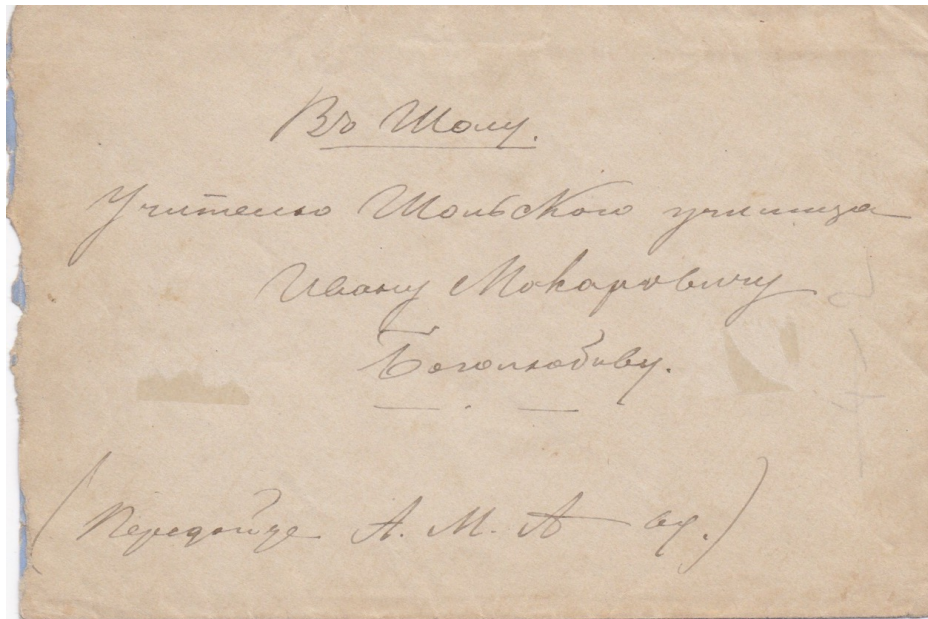 Въ Шолу.
Учителю Шольскаго училища
Ивану Макаровичу
Боголюбову.
(Передайте А. М. А—ву.)